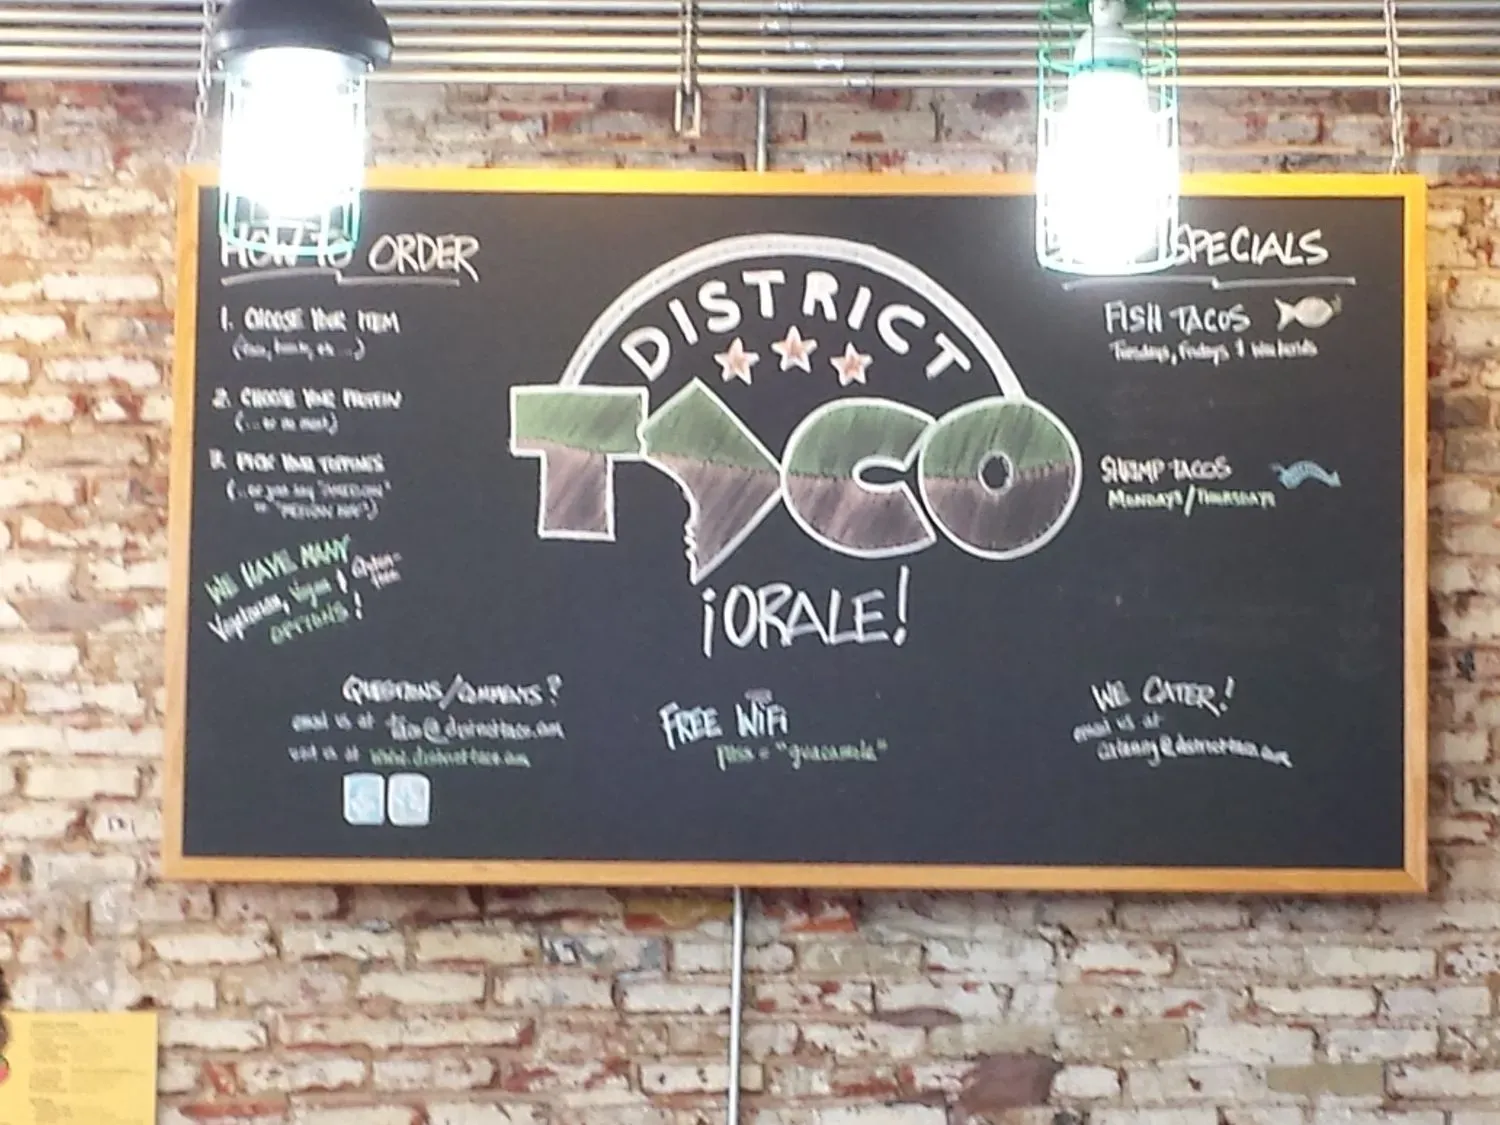 HOW TO ORDER
1. CHOOSE YOUR ITEM
2. CHOOSE YOUR PROTEIN
(... or no meat)
3. PICK YOUR TOPPINGS
(... or just say "AMERICAN"
or "MEXICAN")
WE HAVE MANY
Vegetarian, Vegan & Gluten-
free
OPTIONS!
DISTRICT
TACO
¡ORALE!
SPECIALS
FISH TACOS
Tuesdays, Fridays & Weekends
SHRIMP TACOS
MONDAYS/THURSDAYS
QUESTIONS/COMMENTS?
email us at taco@districttaco.com
visit us at www.districttaco.com
FREE WiFi
pass = "guacamole"
WE CATER!
email us at
catering@districttaco.com